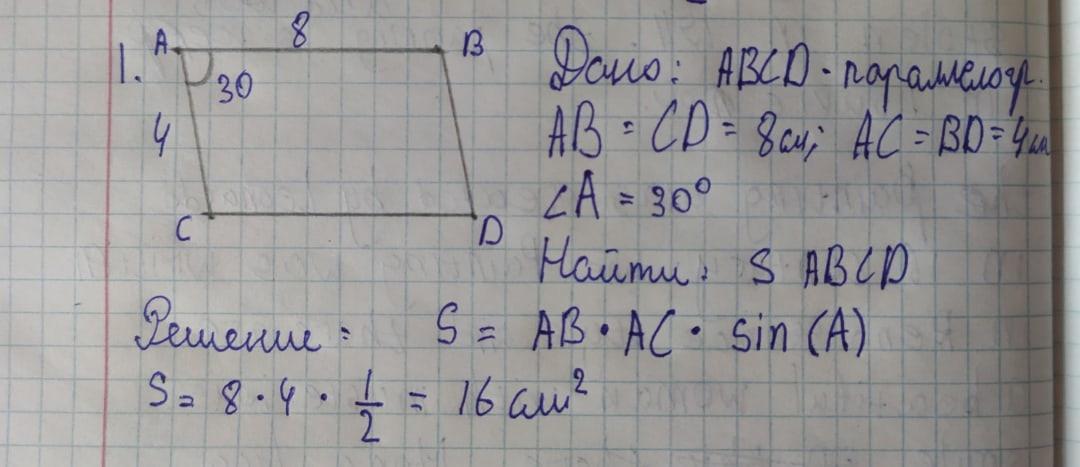 A 8 B
1. 30
4
C D
Дано: ABCD - параллелогр.
AB = CD = 8см; AC = BD = 4см
∠A = 30°
Найти: S ABCD
Решение: S = AB · AC · sin (A)
S = 8 · 4 · 1/2 = 16 см²